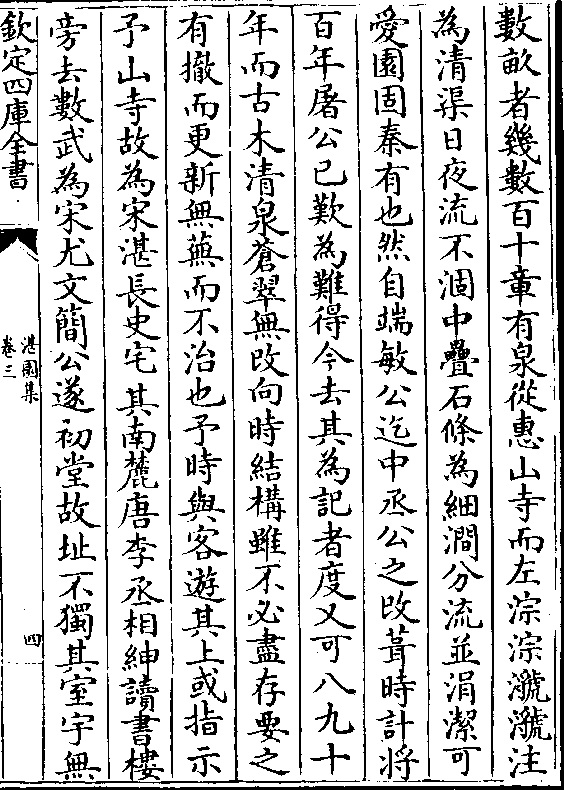 數畝者幾數百十章有泉從惠山寺而左淙淙㶁㶁注
為清渠日夜流不涸中疊石條為細澗分流並涓潔可
愛園固秦有也然自端敏公迄中丞公之改葺時計將
百年屠公已歎為難得今去其為記者度又可八九十
年而古木清泉蒼翠無改向時結構雖不必盡存要之
有撤而更新無蕪而不治也予時與客遊其上或指示
予山寺故為宋湛長史宅其南麓唐李丞相紳讀書樓
旁去數武為宋尤文簡公遂初堂故址不獨其室宇無
欽定四庫全書
湛園集
卷三
四